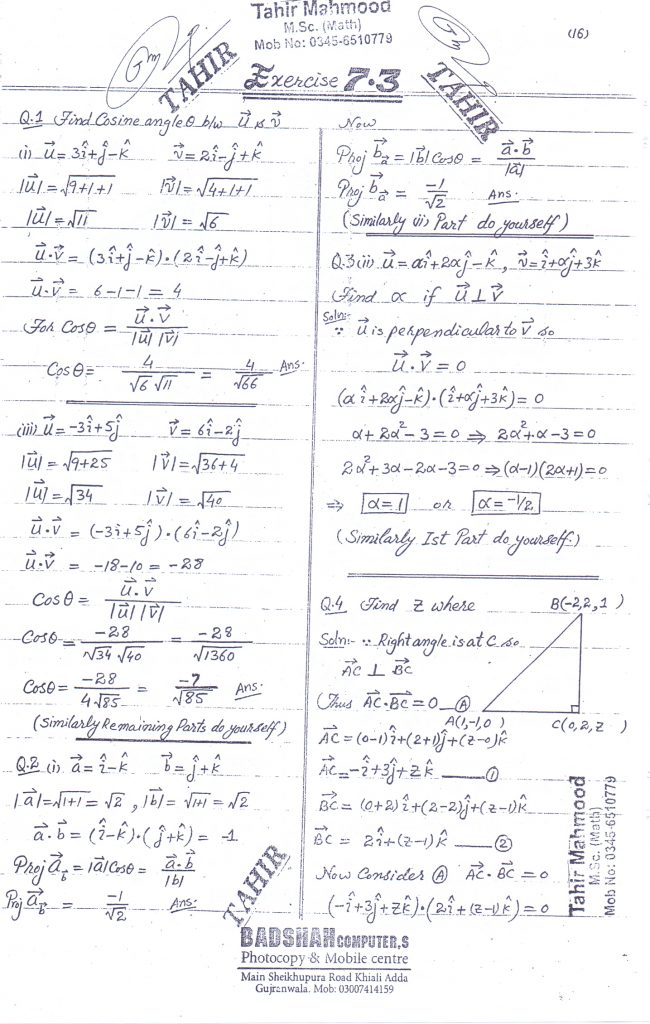 Tahir Mahmood
M.Sc. (Math)
Mob No: 0345-6510779
(16)
Gm
TAHIR
Gm
TAHIR
Exercise 7.3
Q.1 Find Cosine angle θ b/w u⃗ & v⃗
(i) u⃗ = 3î+ĵ-k̂ v⃗ = 2î-ĵ+k̂
|u⃗| = √9+1+1 |v⃗| = √4+1+1
|u⃗| = √11 |v⃗| = √6
u⃗·v⃗ = (3î+ĵ-k̂)·(2î-ĵ+k̂)
u⃗·v⃗ = 6-1-1 = 4
For Cosθ = u⃗·v⃗ / |u⃗| |v⃗|
Cosθ = 4 / √6 √11 = 4 / √66 Ans.
(iii) u⃗ = -3î+5ĵ v⃗ = 6î-2ĵ
|u⃗| = √9+25 |v⃗| = √36+4
|u⃗| = √34 |v⃗| = √40
u⃗·v⃗ = (-3î+5ĵ)·(6î-2ĵ)
u⃗·v⃗ = -18-10 = -28
Cosθ = u⃗·v⃗ / |u⃗| |v⃗|
Cosθ = -28 / √34 √40 = -28 / √1360
Cosθ = -28 / 4√85 = -7 / √85 Ans.
(Similarly Remaining Parts do yourself)
Q.2 (i) a⃗ = î-k̂ b⃗ = ĵ+k̂
|a⃗| = √1+1 = √2 , |b⃗| = √1+1 = √2
a⃗·b⃗ = (î-k̂)·(ĵ+k̂) = -1
Proj a⃗_b = |a⃗|Cosθ = a⃗·b⃗ / |b|
Proj a⃗_b = -1 / √2 Ans.
Now
Proj b⃗_a = |b| Cosθ = a⃗·b⃗ / |a⃗|
Proj b⃗_a = -1 / √2 Ans.
(Similarly (ii) Part do yourself)
Q.3(ii) u⃗ = αî+2αĵ-k̂ , v⃗ = î+αĵ+3k̂
Find α if u⃗ ⊥ v⃗
Soln:-
∵ u⃗ is perpendicular to v⃗ so
u⃗·v⃗ = 0
(αî+2αĵ-k̂)·(î+αĵ+3k̂) = 0
α+2α²-3 = 0 ⇒ 2α²+α-3 = 0
2α²+3α-2α-3 = 0 ⇒ (α-1)(2α+1) = 0
⇒ α = 1 or α = -1/2
(Similarly Ist Part do yourself.)
Q.4 Find z where B(-2,2,1 )
Soln:- ∵ Right angle is at C so
AC⃗ ⊥ BC⃗
Thus AC⃗·BC⃗ = 0 — (A)
A(1,-1,0 ) C(0,2,z )
AC⃗ = (0-1)î+(2+1)ĵ+(z-0)k̂
AC⃗ = -î+3ĵ+zk̂ — (1)
BC⃗ = (0+2)î+(2-2)ĵ+(z-1)k̂
BC⃗ = 2î+(z-1)k̂ — (2)
Now Consider (A) AC⃗·BC⃗ = 0
(-î+3ĵ+zk̂)·(2î+(z-1)k̂) = 0
Tahir Mahmood
M.Sc. (Math)
Mob No: 0345-6510779
TAHIR
BADSHAH COMPUTER,S
Photocopy & Mobile centre
Main Sheikhupura Road Khiali Adda
Gujranwala. Mob: 03007414159